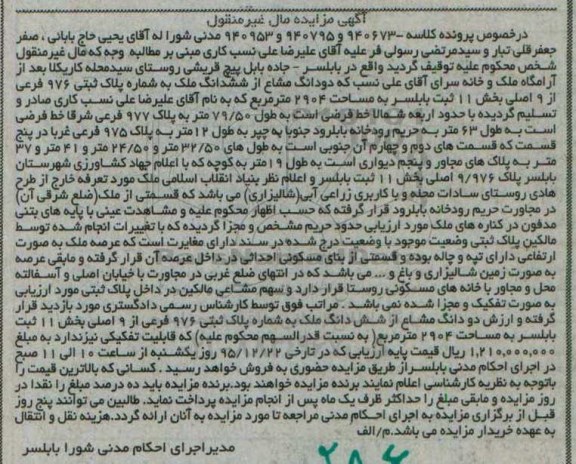 آگهی مزایده مال غیرمنقول
درخصوص پرونده کلاسه ۹۴۰۶۷۳- ۹۴۰۷۹۵ و ۹۴۰۹۵۳ مدنی شورا له آقای یحیی حاج بابائی ، صفر
جعفرقلی تبار و سیدمرتضی رسولی فر علیه آقای علیرضا علی نسب کاری مبنی بر مطالبه وجه که مال غیرمنقول
شخص محکوم علیه توقیف گردید واقع در بابلسر – جاده بابل پیچ قریشی روستای سیدمحله کاریکلا بعد از
آرامگاه ملک و خانه سرای آقای علی نسب که دودانگ مشاع از ششدانگ ملک به شماره پلاک ثبتی ۹۷۶ فرعی
از ۹ اصلی بخش ۱۱ ثبت بابلسر به مساحت ۲۹۰۴ مترمربع که به نام آقای علیرضا علی نسب کاری صادر و
تسلیم گردیده با حدود اربعه شمالا خط فرضی است به طول ۷۹/۵۰ متر به پلاک ۹۷۷ فرعی شرقا خط فرضی
است به طول ۶۳ متر به حریم رودخانه بابلرود جنوبا به چپر به طول ۱۲متر به پلاک ۹۷۵ فرعی غربا در پنج
قسمت که قسمت های دوم و چهارم آن جنوبی است به طول های ۳۲/۵۰ متر و ۲۴/۵۰ متر و ۴۱ متر و ۳۷
متر به پلاک های مجاور و پنجم دیواری است به طول ۱۹متر به کوچه که با اعلام جهاد کشاورزی شهرستان
بابلسر پلاک ۹/۹۷۶ اصلی بخش ۱۱ ثبت بابلسر و اعلام نظر بنیاد انقلاب اسلامی ملک مورد تعرفه خارج از طرح
هادی روستای سادات محله و با کاربری زراعی آبی(شالیزاری) می باشد که قسمتی از ملک(ضلع شرقی آن)
در مجاورت حریم رودخانه بابلرود قرار گرفته که حسب اظهار محکوم علیه و مشاهدت عینی با پایه های بتنی
مدفون در کناره های ملک مورد ارزیابی حدود حریم مشخص و مجزا گردیده که با تغییرات انجام شده توسط
مالکین پلاک ثبتی وضعیت موجود با وضعیت درج شده در سند دارای مغایرت است که عرصه ملک به صورت
ارتفاعی دارای تپه و چاله بوده و قسمتی از بنای مسکونی احداثی در داخل عرصه آن قرار گرفته و مابقی عرصه
به صورت زمین شالیزاری و باغ و ... می باشد که در انتهای ضلع غربی در مجاورت با خیابان اصلی و آسفالته
محل و مجاور با خانه های مسکونی روستا قرار دارد و سهم مشاعی مالکین در داخل پلاک ثبتی مورد ارزیابی
به صورت تفکیک و مجزا شده نمی باشد . مراتب فوق توسط کارشناس رسمی دادگستری مورد بازدید قرار
گرفته و ارزش دو دانگ مشاع از شش دانگ ملک به شماره پلاک ثبتی ۹۷۶ فرعی از ۹ اصلی بخش ۱۱ ثبت
بابلسر به مساحت ۲۹۰۴ مترمربع( به نسبت قدرالسهم محکوم علیه) که قابلیت تفکیکی نیزندارد به مبلغ
۱,۲۱۰,۰۰۰,۰۰۰ ریال قیمت پایه ارزیابی که در تارخی ۹۵/۱۲/۲۲ روز یکشنبه از ساعت ۱۰ الی ۱۱ صبح
در اجرای احکام مدنی بابلسراز طریق مزایده حضوری به فروش خواهد رسید . کسانی که بالاترین قیمت را
باتوجه به نظریه کارشناسی اعلام نمایند برنده مزایده خواهند بود.برنده مزایده باید ده درصد مبلغ را نقدا در
روز مزایده و مابقی مبلغ را حداکثر ظرف یک ماه پس از انجام مزایده پرداخت نماید. طالبین می توانند پنج روز
قبل از برگزاری مزایده به اجرای احکام مدنی مراجعه تا مورد مزایده به آنان ارائه گردد.هزینه نقل و انتقال
به عهده خریدار مزایده می باشد.م/الف
مدیراجرای احکام مدنی شورا بابلسر
۲۸۶